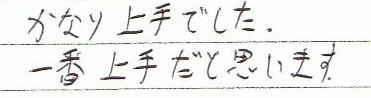 かなり上手でした.
一番上手だと思います.